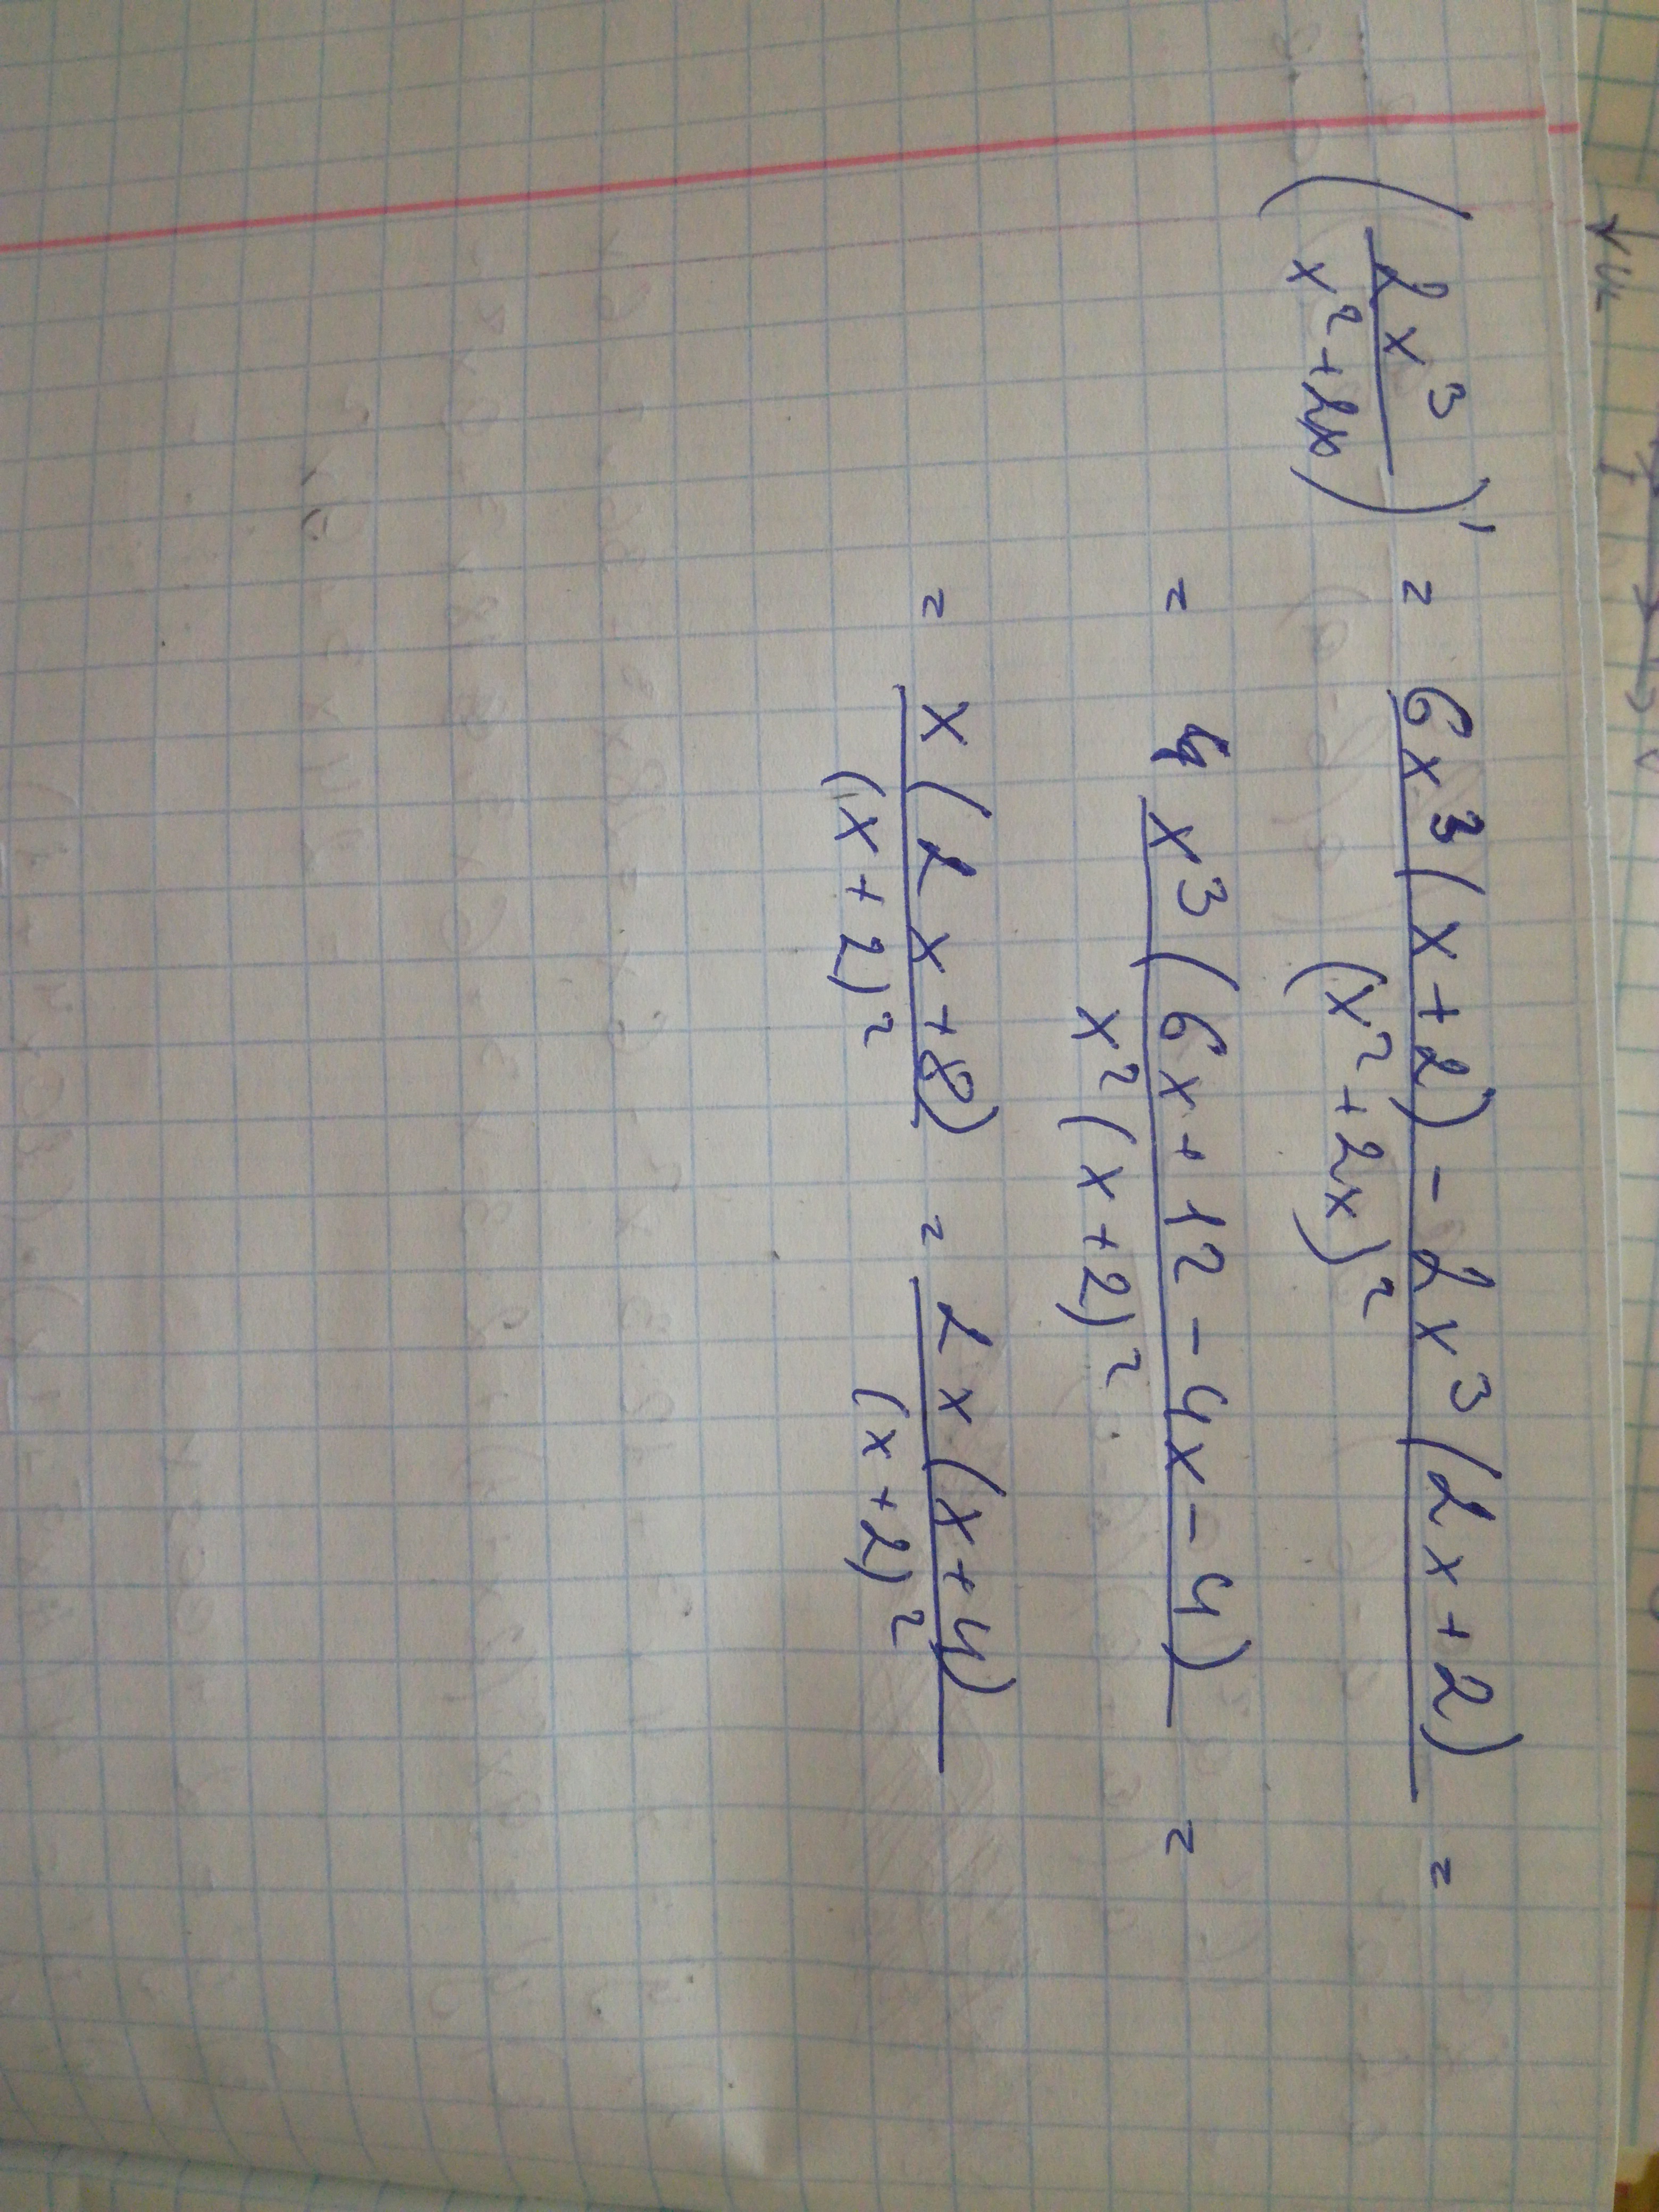 (2x³/(x²+2x))' = (6x³(x+2) - 2x³(2x+2))/(x²+2x)² =
= x³(6x+12-4x-4)/(x²(x+2)²) =
= x(2x+8)/(x+2)² = 2x(x+4)/(x+2)²